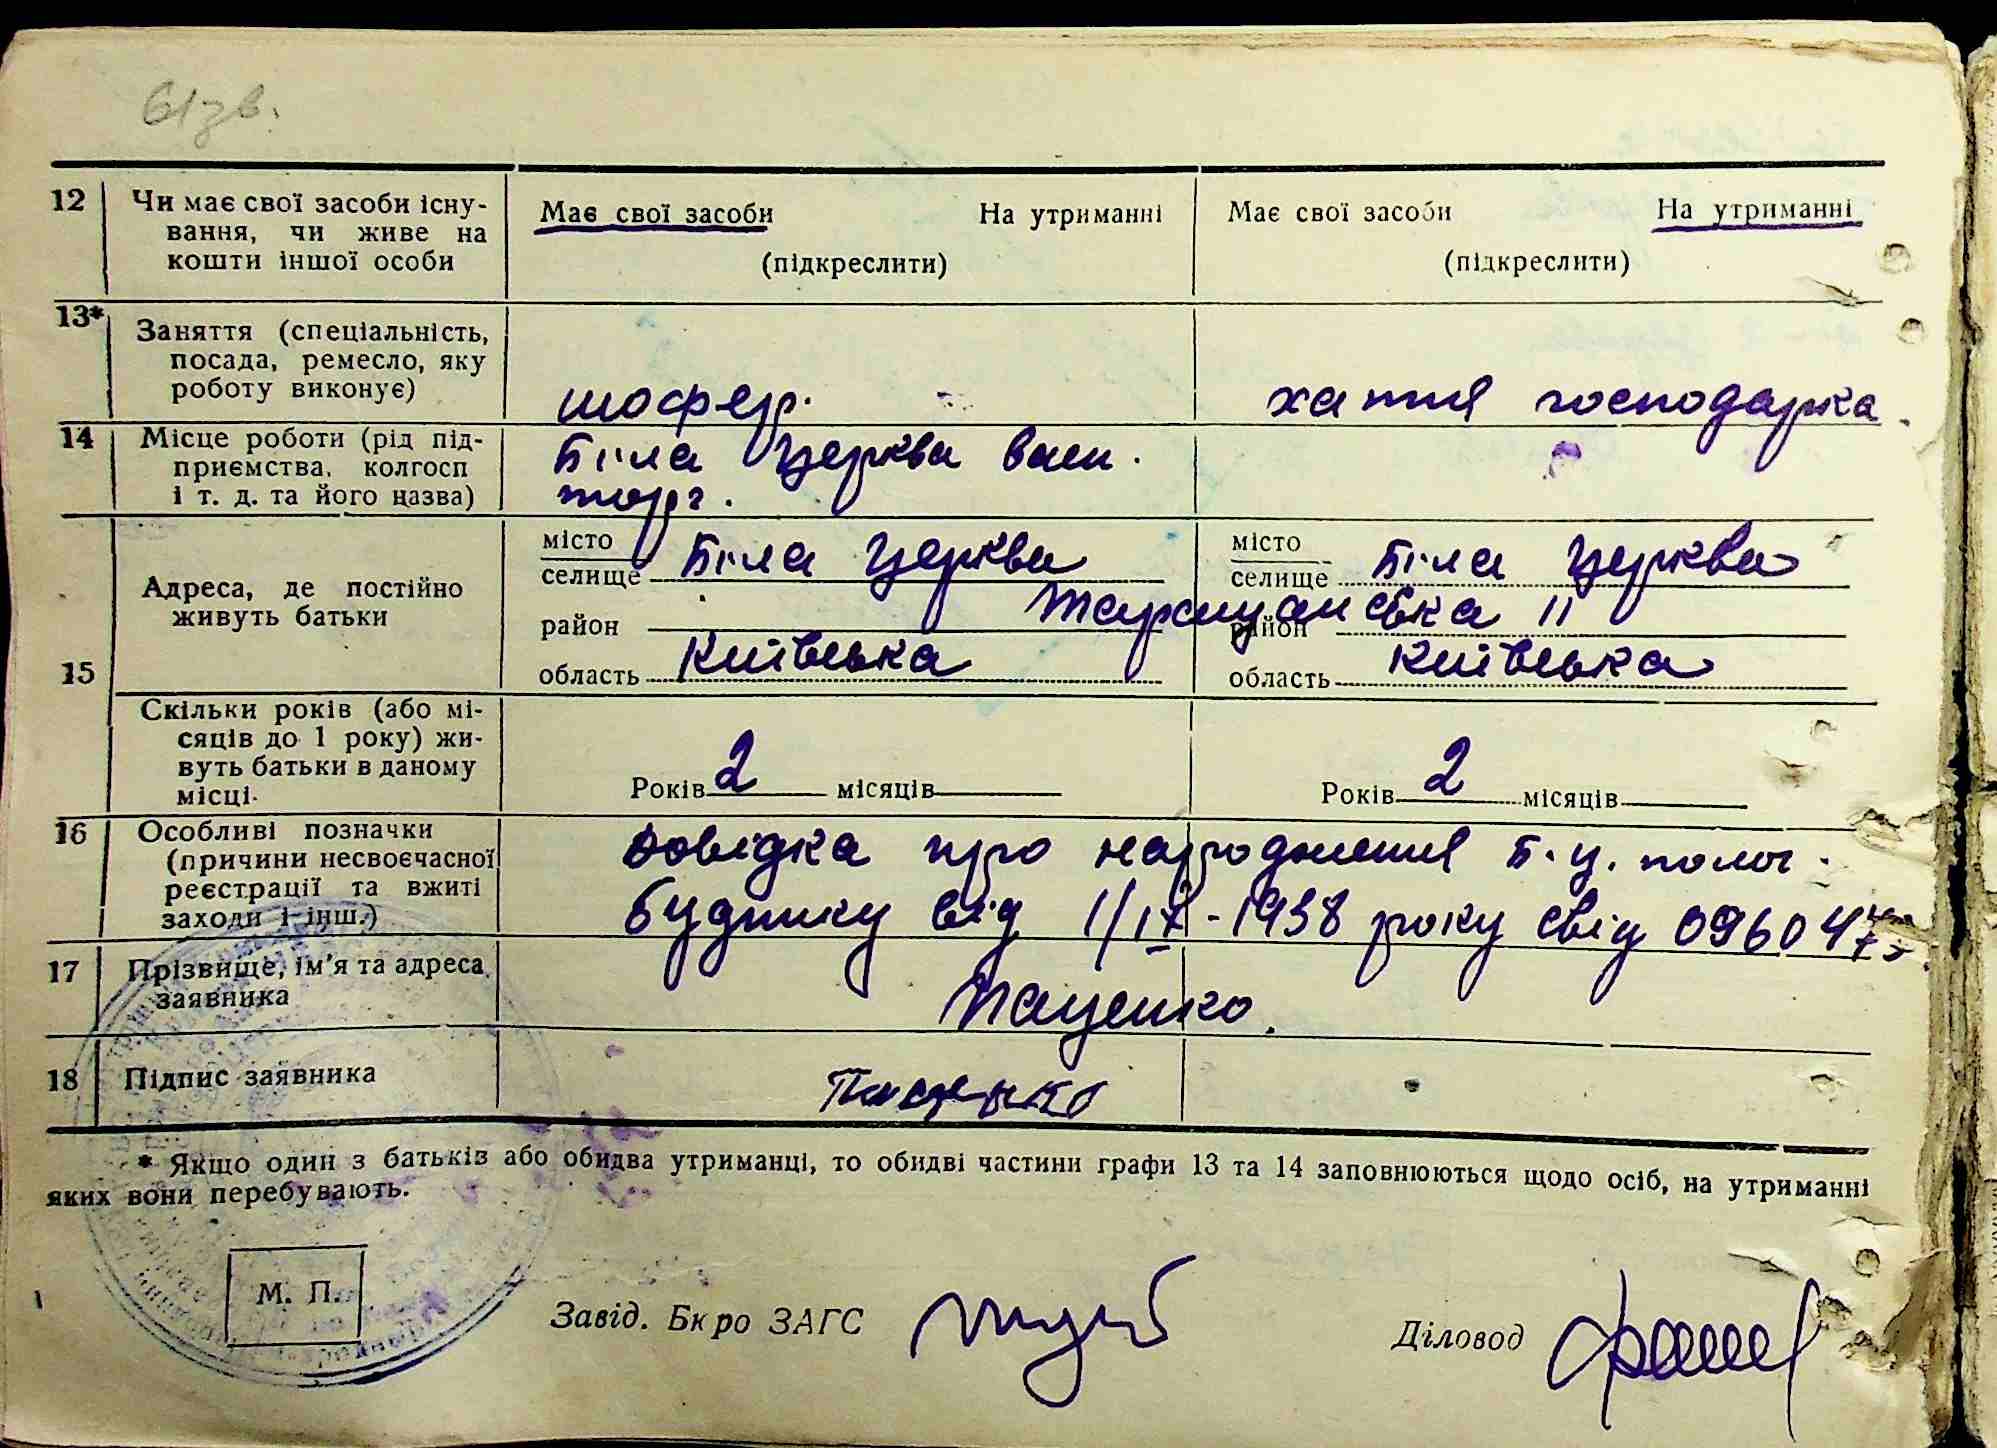 61зв.
12 Чи має свої засоби існу- Має свої засоби На утриманні Має свої засоби На утриманні
вання, чи живе на
кошти іншої особи (підкреслити) (підкреслити)
13* Заняття (спеціальність,
посада, ремесло, яку
роботу виконує) шофер. хатня господарка.
14 Місце роботи (рід під- Біла Церква
приємства, колгосп
і т. д. та його назва) торг.
місто місто
селище Біла Церква селище Біла Церква
Адреса, де постійно
живуть батьки
район Таращанська 11 район
15 область Київська область Київська
Скільки років (або мі-
сяців до 1 року) жи-
вуть батьки в даному
місці. Років 2 місяців Років 2 місяців
16 Особливі позначки Довідка про народження Б.Ц. полог.
(причини несвоєчасної
реєстрації та вжиті будинку від 1/IX-1938 року свід
заходи і інш.)
17 Прізвище, ім'я та адреса
заявника Пащенко.
18 Підпис заявника Пащенко
* Якщо один з батьків або обидва утриманці, то обидві частини графи 13 та 14 заповнюються щодо осіб, на утриманні
яких вони перебувають.
М. П.
Завід. Бюро ЗАГС
Діловод